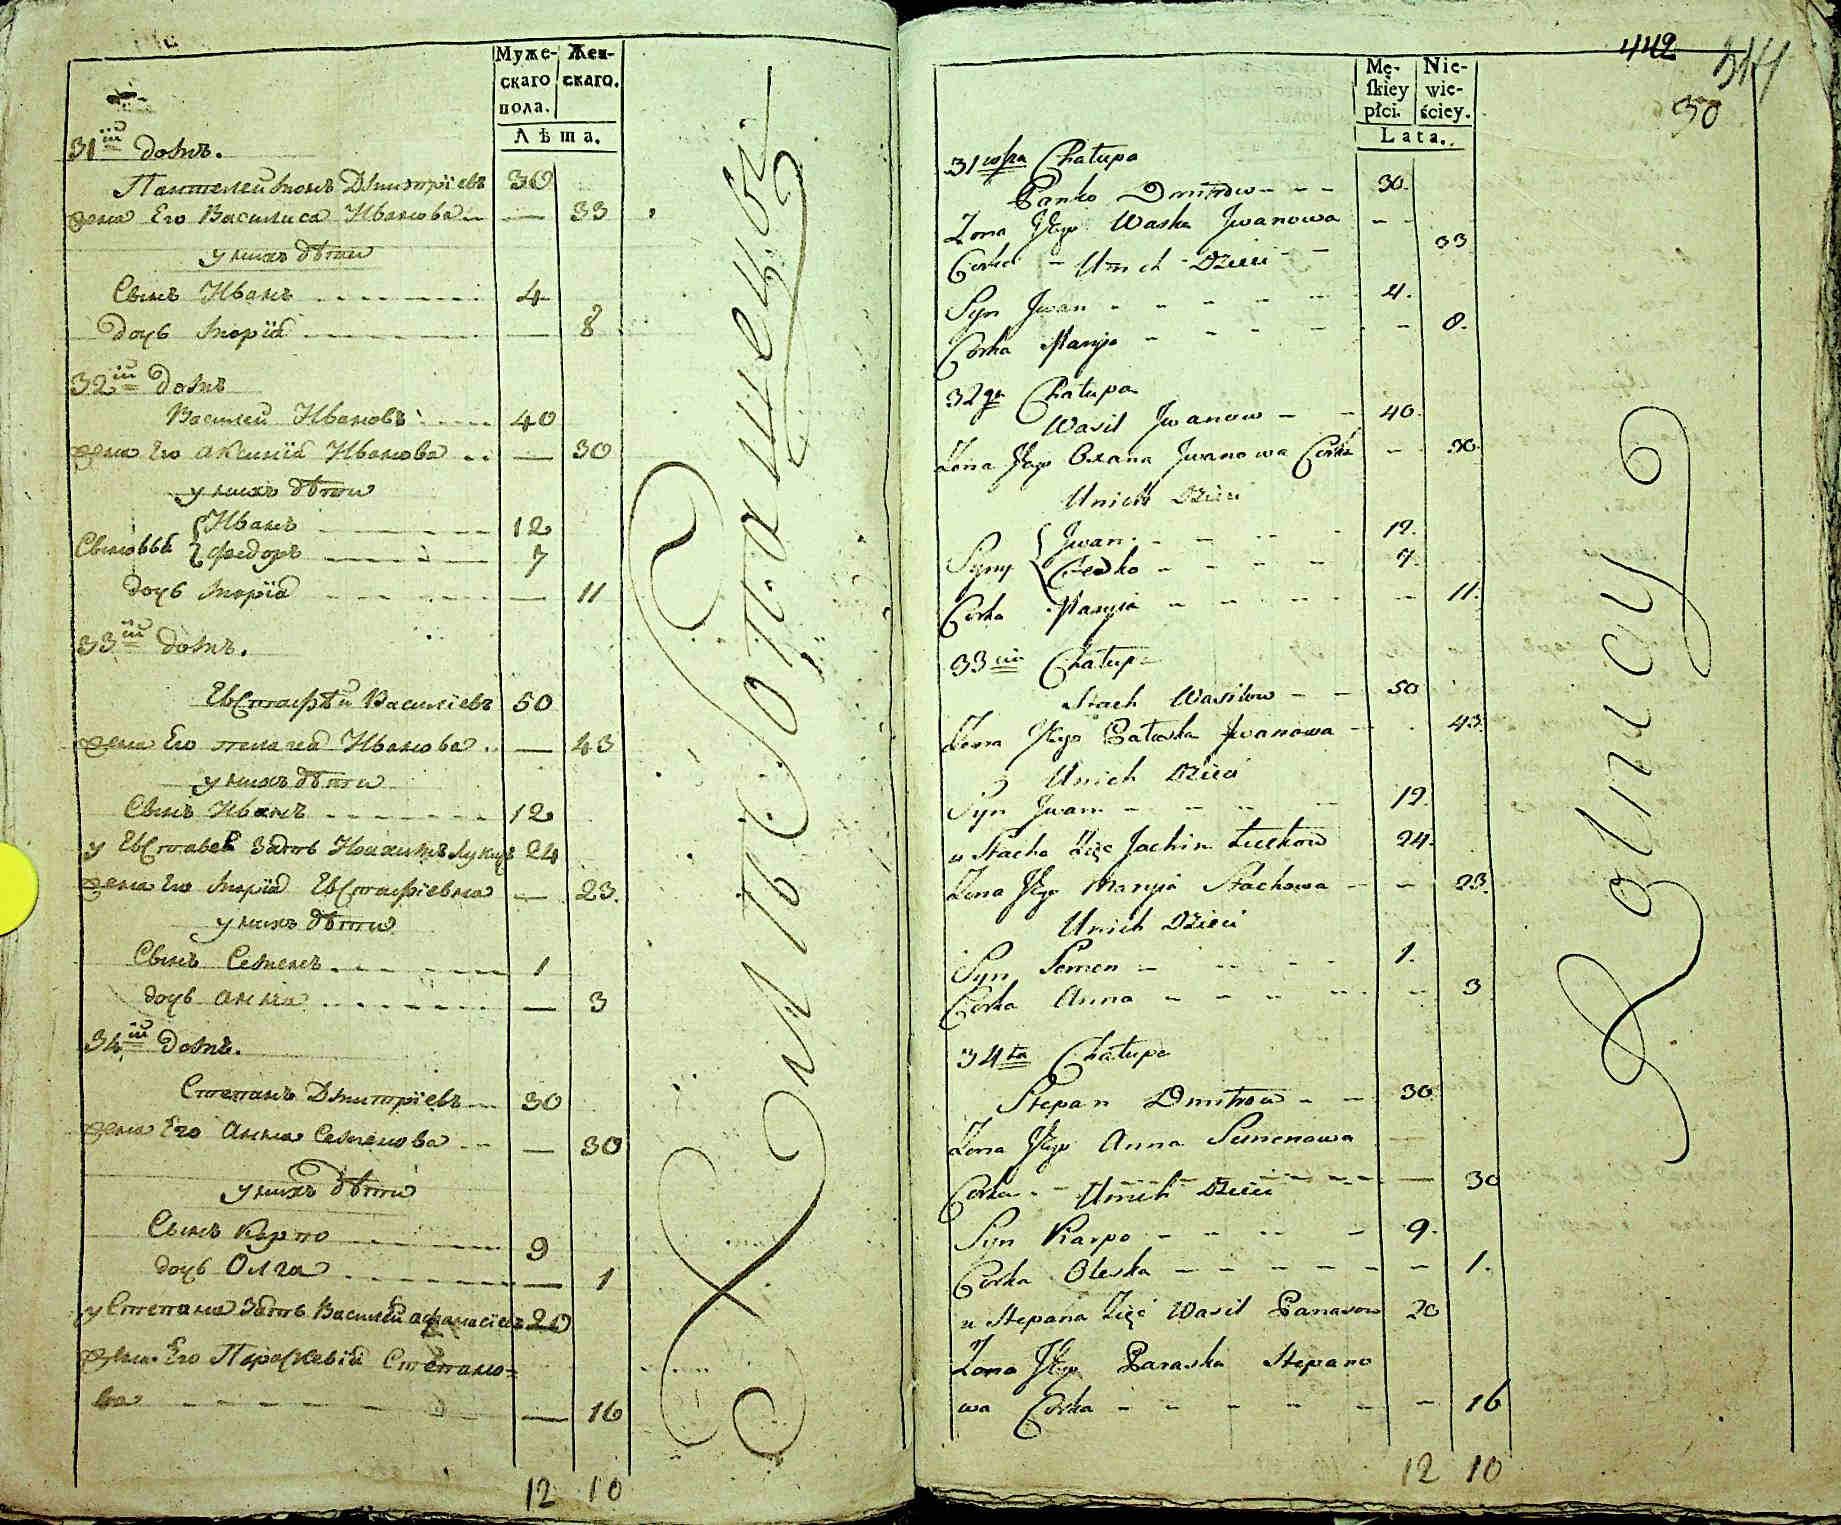 Муже-
скаго
пола.
Жен-
скаго.
Лѣта.
31й домъ.
Пантелеймонъ Дмитрїевъ 30
жена Его Василиса Иванова — 33
у нихъ дѣти
Сынъ Иванъ 4
дочь Марїя — 8
32й домъ
Василей Ивановъ 40
жена Его Аксинїя Иванова — 30
у нихъ дѣти
Сыновья { Иванъ 12
Федоръ 7
дочь Марїя — 11
33й домъ.
Евстафѣй Василїевъ 50
жена Его пелагея Иванова — 43
у нихъ дѣти
Сынъ Иванъ 12
у Евстафея Зать Иоакимъ Лукинъ 24
жена Его Марїя Евстафїевна — 23.
у нихъ дѣти
Сынъ Семенъ 1
дочь анна — 3
34й домъ.
Степанъ Дмитрїевъ 30
жена Его Анна Семенова — 30
у нихъ дѣти
Сынъ Карпо 9
дочь Олга — 1
у Степана Зать Василей афанасїевъ 20
жена Его Параскевїя Степано=
ва — 16
12 10
442
314
30
Mę-
ſkiey
płci.
Nie-
wie-
ściey.
Lata.
31wsza Chałupa
Panko Dmitrow 30.
Zona Jego Waska Jwanowa
Corka 33
Unich Dzieci
Syn Jwan 4.
Corka Maryia 8.
32ga Chałupa
Wasil Jwanow 40.
Zona Jego Oxana Jwanowa Corka 30.
Unich Dzieci
Syny { Jwan 12.
Chedko 7.
Corka Maryia 11.
33cia Chałupa
Stach Wasilow 50
Zona Jego Pałaska Jwanowa 43.
Unich Dzieci
Syn Jwan 12.
u Stacha Zięć Jachim Łuckow 24.
Zona Jego Maryia Stachowa 23.
Unich Dzieci
Syn Semen 1.
Corka Anna 3
34ta Chałupa
Stepan Dmitrow 30.
Zona Jego Anna Semenowa
Corka 30
Unich Dzieci
Syn Karpo 9.
Corka Oleska 1.
u Stepana Zięć Wasil Panasow 20
Zona Jego Paraska Stepano
wa Corka 16
12 10
Rolnicy